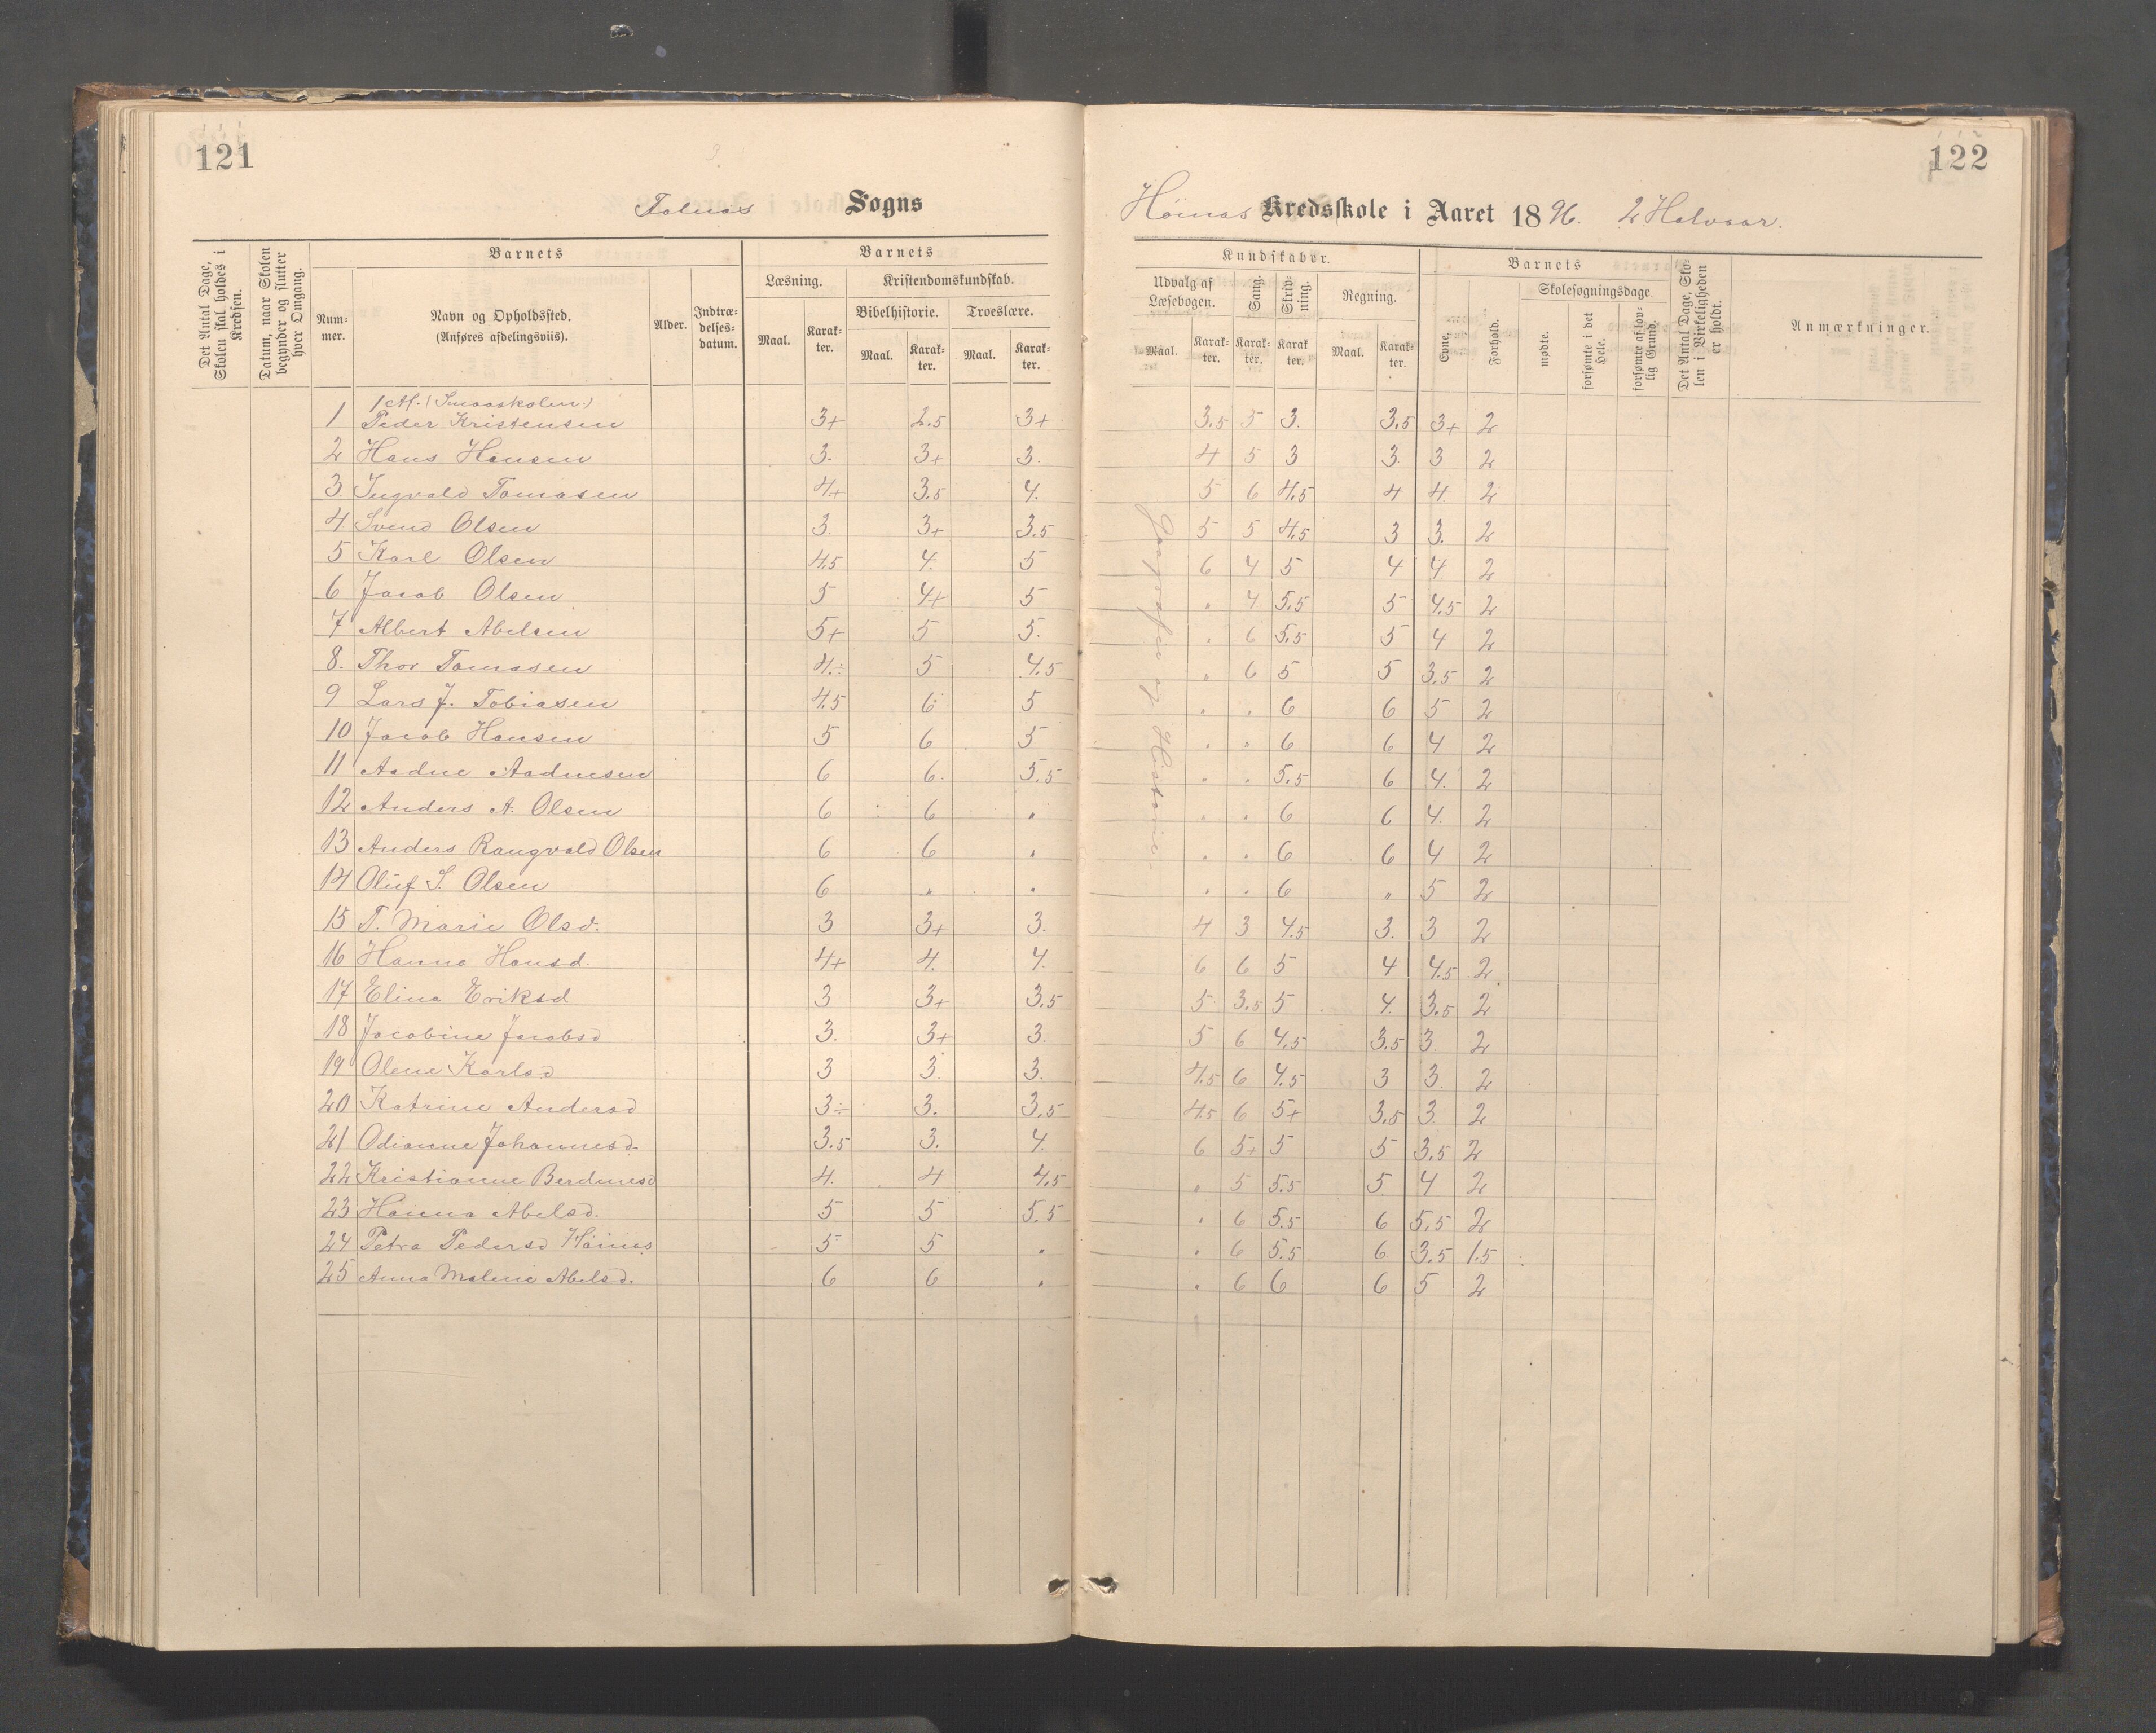 121
122
Sogns
Kredsskole i Aaret 1896. 2 Halvaar.
Det Antal Dage, Skolen skal holdes i Kredsen.
Datum, naar Skolen begynder og slutter hver Omgang.
Barnets
Num-mer.
Navn og Opholdssted. (Anføres afdelingsviis).
Alder.
Indtræ-delses-datum.
Barnets
Læsning.
Maal. Karak-ter.
Kristendomskundskab.
Bibelhistorie.
Maal. Karak-ter.
Troeslære.
Maal. Karak-ter.
Kundskaber.
Udvalg af Læsebogen.
Maal. Karak-ter.
Sang. Karak-ter.
Skriv-ning. Karak-ter.
Regning.
Maal. Karak-ter.
Barnets
Evne.
Forhold.
Skolesøgningsdage
mødte.
forsømte i det Hele.
forsømte af lov-lig Grund.
Det Antal Dage, Sko-len i Virkeligheden er holdt.
Anmærkninger.
Geografie og Historie.
1 Af. (Smaaskolen.)
1 Peder Kristensen 3+ 2.5 3+ 3.5 5 3. 3.5 3+ 2
2 Hans Hansen 3. 3+ 3. 4 5 3 3. 3 2
3. Ingvald Tomasen 4+ 3.5 4. 5 6 4.5 4 4 2
4 Svend Olsen 3. 3+ 3.5 5 5 4.5 3 3. 2
5 Karl Olsen 4.5 4. 5 6 4 5 4 4. 2
6 Jacob Olsen 5 4+ 5 " 4 5.5 5 4.5 2
7 Albert Abelsen 5+ 5 5. " 6 5.5 5 4 2
8. Thor Tomasen 4.÷ 5 4.5 " 6 5 5 3.5 2
9 Lars J. Tobiasen 4.5 6 5 " " 6 6 5 2
10 Jacob Hansen 5 6 5 " " 6 6 4 2
11 Aadne Aadnesen 6 6. 5.5 " " 5.5 6 4. 2
12 Anders A. Olsen 6 6 " " " 6 6 4. 2
13 Anders Rangvald Olsen 6 6 " " " 6 6 4 2
14 Oluf S. Olsen 6 " " " " 6 " 5 2
15 T. Marie Olsd. 3 3+ 3. 4 3 4.5 3. 3 2
16 Hanna Hansd. 4+ 4. 4. 6 6 5 4 4.5 2
17 Elina Eriksd 3 3+ 3.5 5 3.5 5 4. 3.5 2
18 Jacobine Jacobsd 3. 3+ 3. 5 6 4.5 3.5 3. 2
19 Olene Karlsd 3 3. 3. 4.5 6 4.5 3 3. 2
20 Katrine Andersd 3÷ 3. 3.5 4.5 6 5+ 3.5 3 2
21 Odianne Johannesd. 3.5 3. 4. 6 5+ 5 5 3.5 2
22 Kristianne Berdinesd 4. 4 4.5 " 5 5.5 5. 4 2
23 Hanna Abelsd. 5 5 5.5 " 6 5.5 6 5.5 2
24 Petra Pedersd Höines 5 5 " " 6 5.5 6 3.5 1.5
25 Anna Malene Abelsd. 6 6 " " 6 6 6 5 2